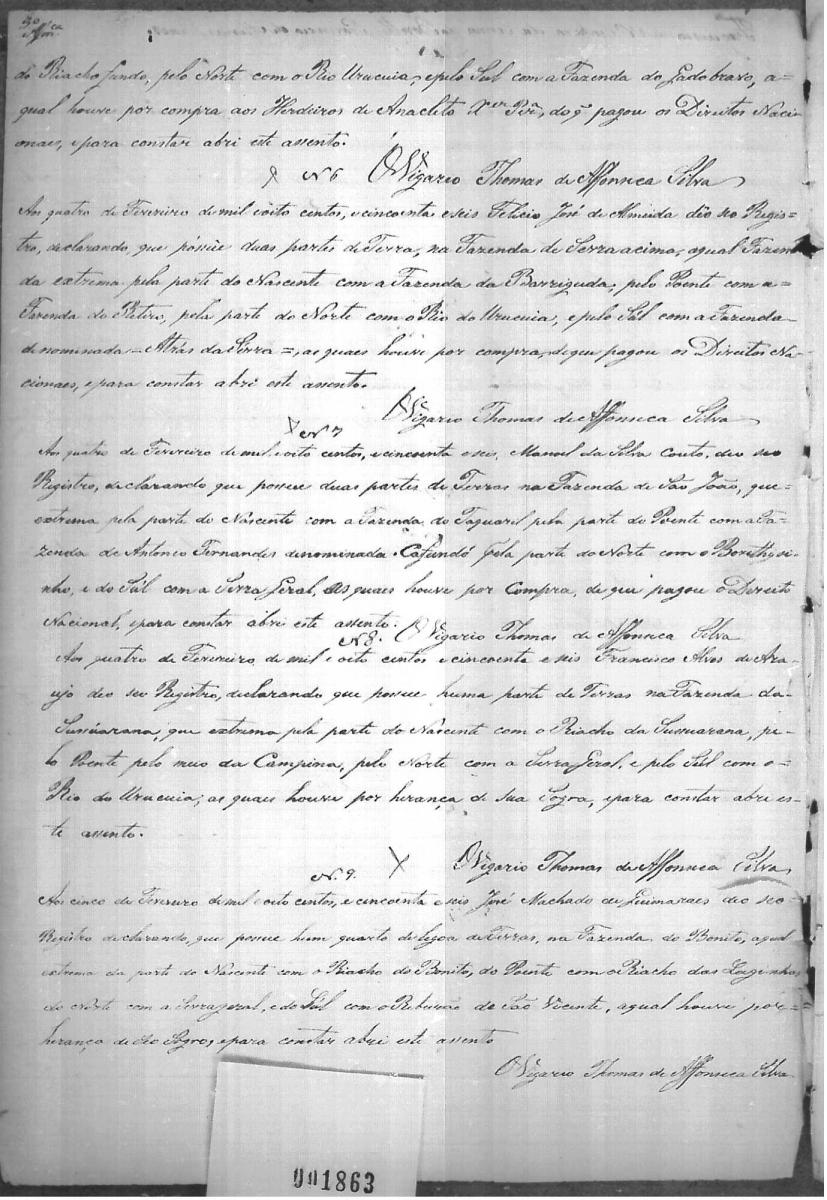 do Riacho fundo, pelo Norte com o Rio Urucuia, e pelo Sul com a Fazenda do Gado bravo, a=
qual houve por compra aos Herdeiros de Anacleto X.er Pr.a, do q.e pagou os Direitos Naci-
onaes, e para constar abri este assento.
N 6 O Vigario Thomas de Affonseca Silva
Aos quatro de Fevereiro de mil e oito centos, e cincoenta e seis Felicio José de Almeida dêo seo Regis=
tro, declarando, que póssùe duas partes de Terra, na Fazenda de Serra acima, a qual Fazen-
da extrema pela parte do Nascente com a Fazenda da Barriguda, pelo Poente com a=
Fazenda do Retiro, pela parte do Norte com o Rio do Urucuia, e pelo Sûl com a Fazenda
denominada = Atrás da Serra =, as quaes houve por compra, de que pagou os Direitos Na-
cionaes, e para constar abri este assento.
O Vigario Thomas de Affonseca Silva
N 7
Aos quatro de Fevereiro de mil e oito centos, e cincoenta e seis, Manoel da Silva Couto, deo seo
Registro, declarando que possue duas partes de Terras na Fazenda de São João, que=
extrema pela parte do Nascente com a Fazenda do Taquaril pela parte do Poente com a Fa-
zenda de Antonio Fernandes denominada Cafundó pela parte do Norte com o Boritysi-
nho, e do Sul com a Serra Geral, As quaes houve por Compra, de que pagou o Direito
Nacional, e para constar abri este assento. O Vigario Thomas de Affonseca Silva
N 8.
Aos quatro de Fevereiro, de mil e oito centos e cincoenta e seis Francisco Alves de Ara-
ujo deo seo Registro, declarando que possue huma parte de Terras na Fazenda da-
Sussúarana, que extrema pela parte do Nascente com o Riacho da Sussuarana, pe-
lo Poente pelo meio da Campina, pelo Norte com a Serra Geral, e pelo Sul com o=
Rio do Urucuia; as quais houve por herança de sua Sogra, e para constar abri es-
te assento.
N. 9. O Vigario Thomas de Affonseca Silva
Aos cinco de Fevereiro de mil e oito centos, e cincoenta e seis José Machado de Guimaraes deo seo
Registro declarando, que possue hum quarto de legoa de Terras, na Fazenda do Bonito, a qual
extrema da parte do Nascente com o Riacho do Bonito, do Poente com o Riacho das Laginhas
do Norte com a Serra geral, e do Sul com o Ribeirão de São Vicente, a qual houve por=
herança de seo Sogro, e para constar abri este assento
O Vigario Thomas de Affonseca Silva
001863